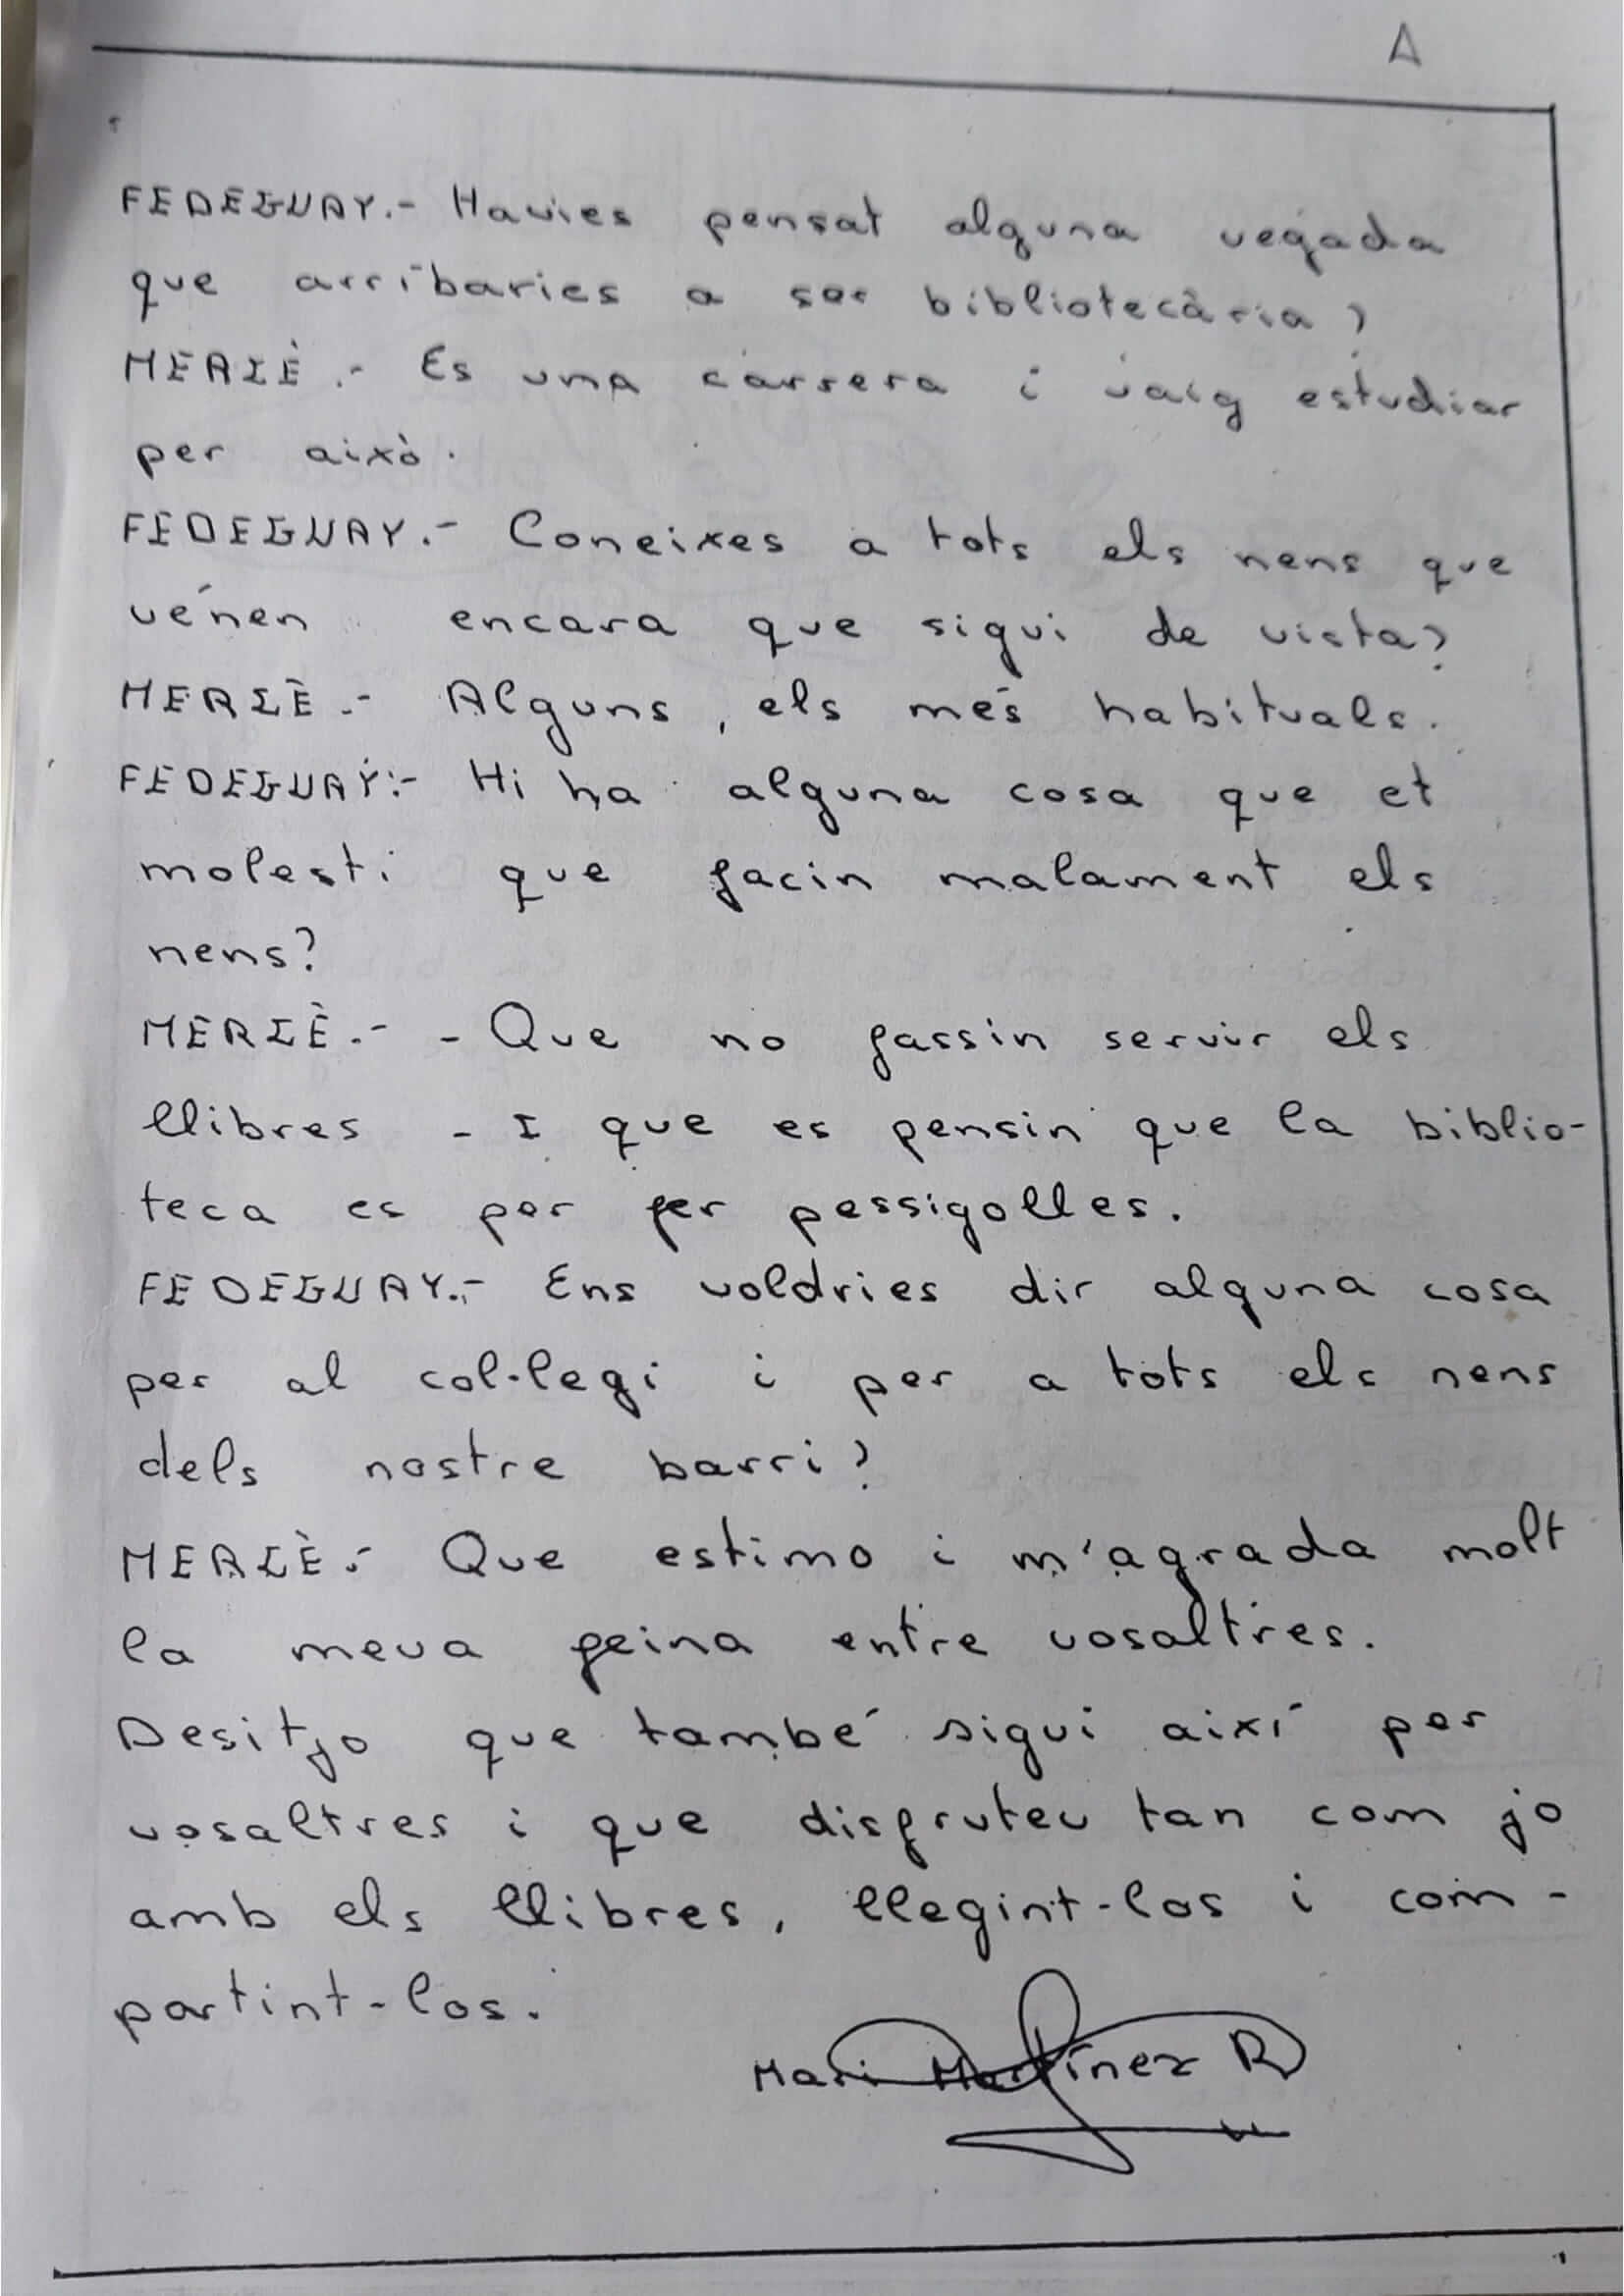 A
FEDEGUAY.- Havies pensat alguna vegada
que arribaries a ser bibliotecària?
MERCÈ.- Es una carrera i vaig estudiar
per això.
FEDEGUAY.- Coneixes a tots els nens que
vénen encara que sigui de vista?
MERCÈ.- Alguns, els més habituals.
FEDEGUAY.- Hi ha alguna cosa que et
molesti que facin malament els
nens?
MERCÈ.- - Que no fassin servir els
llibres - I que es pensin que la biblio-
teca es per fer pessigolles.
FEDEGUAY.- Ens voldries dir alguna cosa
per al col·legi i per a tots els nens
dels nostre barri?
MERCÈ.- Que estimo i m'agrada molt
la meva feina entre vosaltres.
Desitjo que també sigui així per
vosaltres i que disfruteu tan com jo
amb els llibres, llegint-los i com-
partint-los.
Mari Martínez R